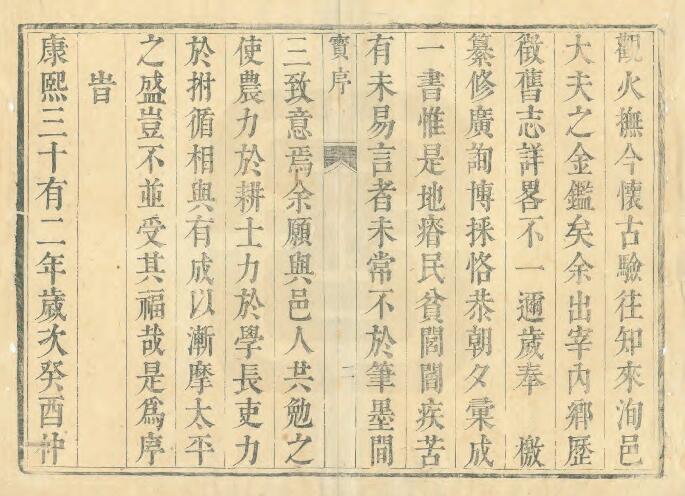 觀火撫今懷古驗往知來洵邑
大夫之金鑑矣余出宰內鄕歷
徵舊志詳畧不一邇歲奉 檄
纂修廣詢博採恪恭朝夕彙成
一書惟是地瘠民貧閭閻疾苦
有未易言者未常不於筆墨間
實序
二
三致意焉余願與邑人共勉之
使農力於耕士力於學長吏力
於拊循相與有成以漸摩太平
之盛豈不並受其福哉是爲序
旹
康熙三十有二年歲次癸酉仲